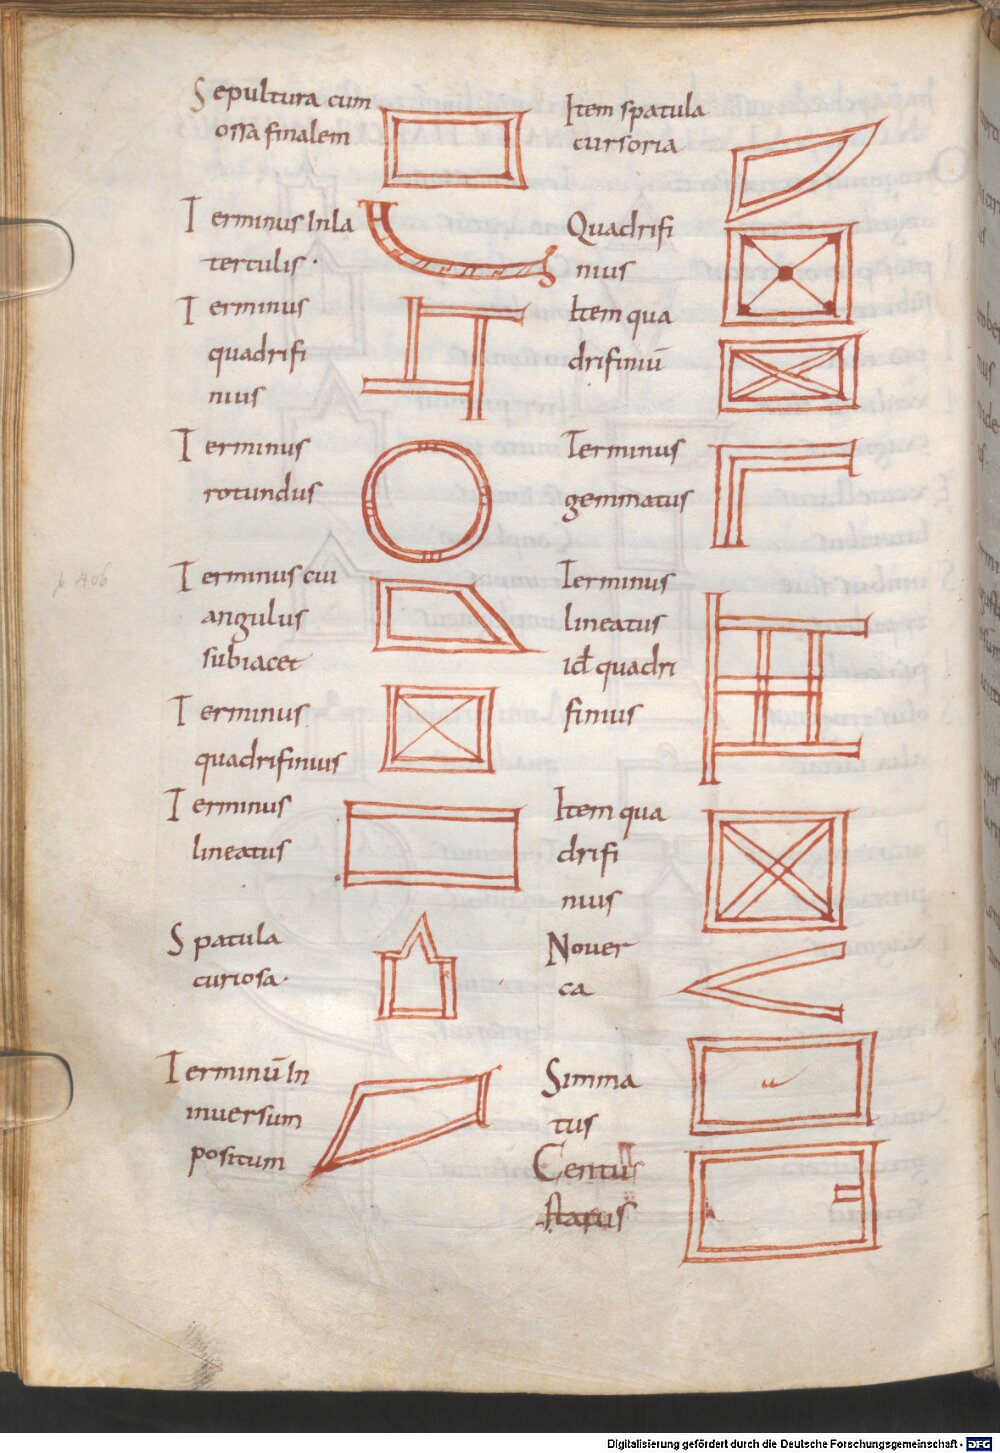 Sepultura cum
ossa finalem
Terminus In la
terculis ·
Terminus
quadrifi
nius
Terminus
rotundus
Terminus cui
angulus
subiacet
Terminus
quadrifinius
Terminus
lineatus
Spatula
curiosa ·
Terminū In
inversum
positum
Item spatula
cursoria
Quadrifi
nius
Item qua
drifiniū
Terminus
gemmatus
Terminus
lineatus
id quadri
finius
Item qua
drifi
nius
Nover
ca
Simma
tus
Digitalisierung gefördert durch die Deutsche Forschungsgemeinschaft - DFG